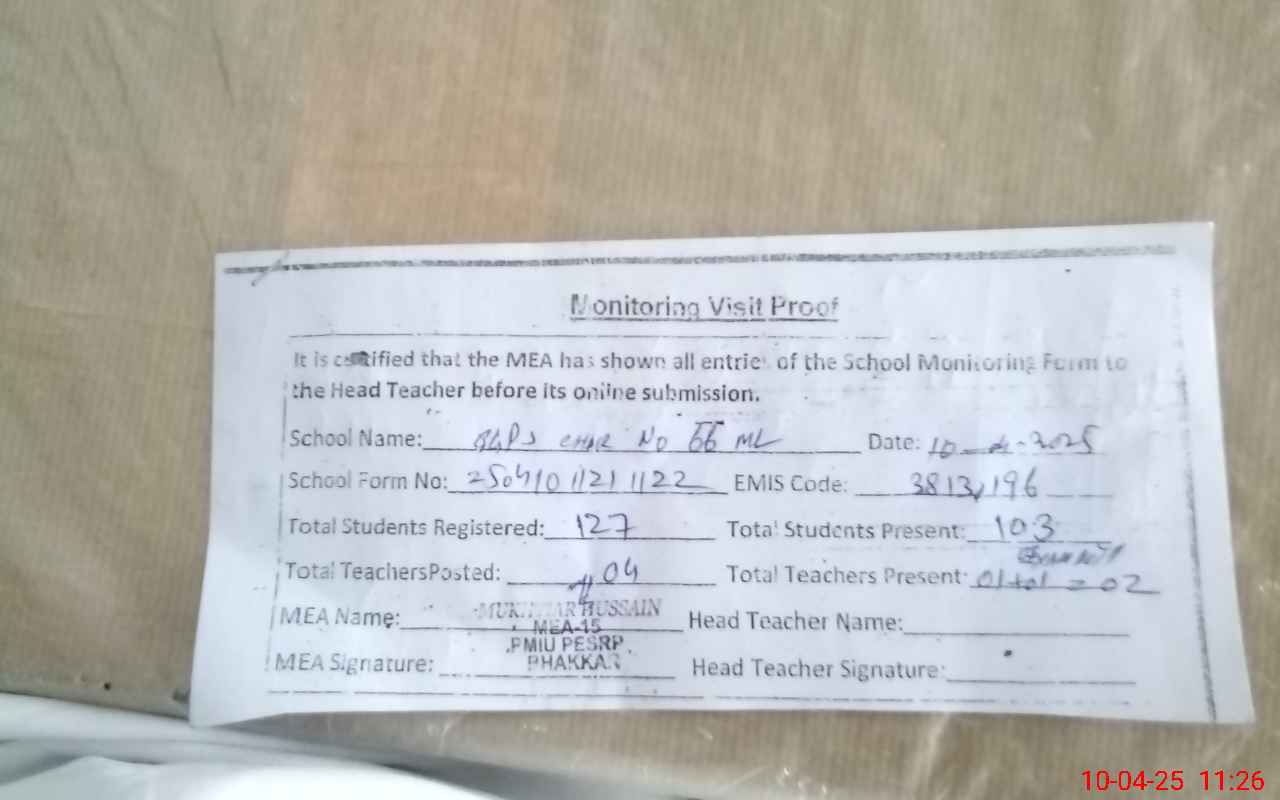 Monitoring Visit Proof
It is certified that the MEA has shown all entries of the School Monitoring Form to
the Head Teacher before its online submission.
School Name: CHAK No 66 ML Date: 10-4-2025
School Form No: 25041011211122 EMIS Code: 38131196
Total Students Registered: 127 Total Students Present: 103
Total TeachersPosted: 04 Total Teachers Present: 01+01 = 02
MEA Name: MUKHTAR HUSSAIN Head Teacher Name:
MEA-15
PMIU PESRP
MEA Signature: BHAKKAR Head Teacher Signature:
10-04-25 11:26